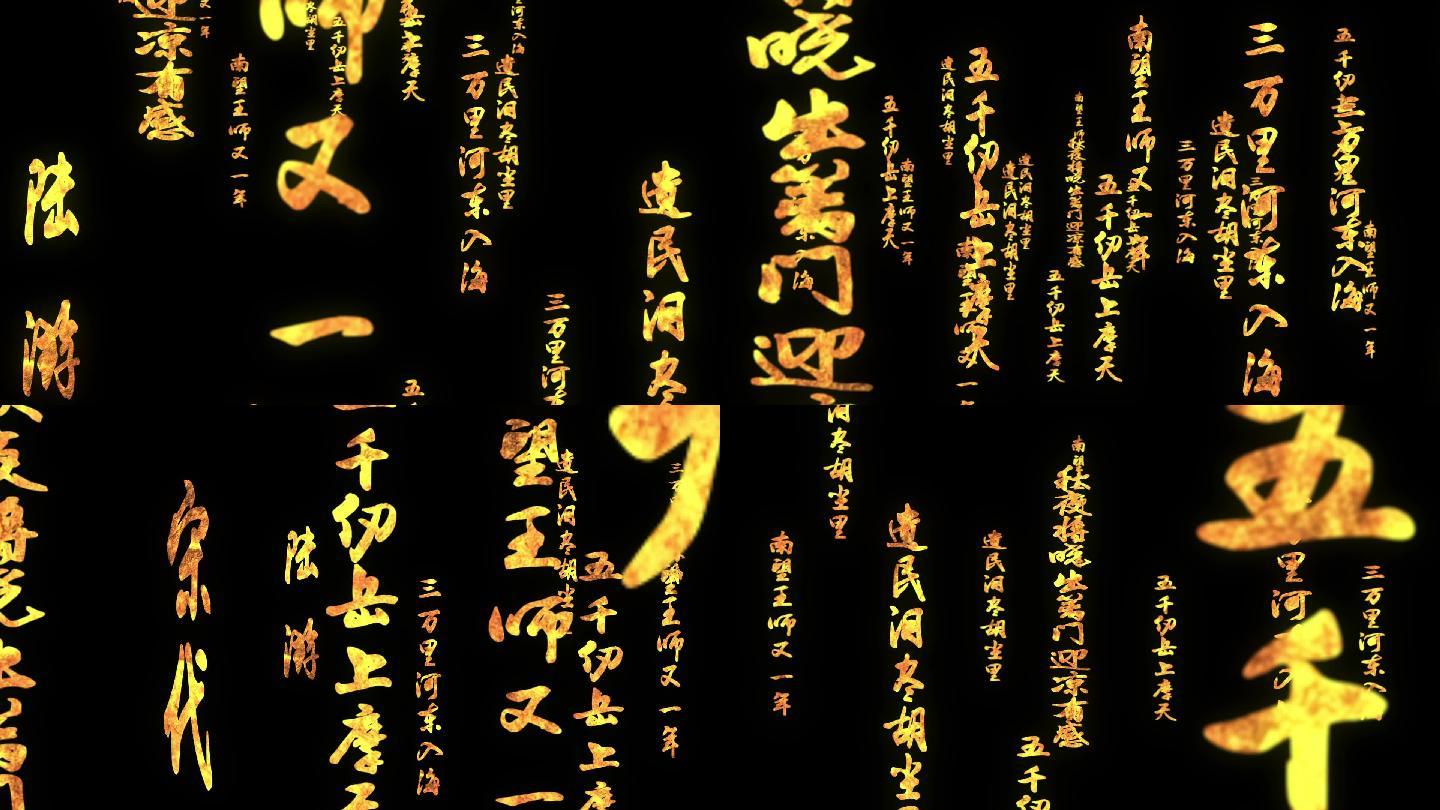 陆游
迎凉有感
南望王师又一年
师又一
五千仞岳上摩天
岳上摩天
三万里河东入海
遗民泪尽胡尘里
河东入海
三万里河东
遗民泪尽
五
晓出篱门迎
五千仞岳上摩天
南望王师又一年
遗民泪尽胡尘里
五千仞岳上摩天
遗民泪尽胡尘里
遗民泪尽胡尘里
秋夜将晓出篱门迎凉有感
五千仞岳上摩天
五千仞岳上摩天
南望王师又一年
三万里河东入海
遗民泪尽胡尘里
三万里河东入海
五千仞
三万里河东入海
南望王师又一年
夜将晓出篱门
宋代
陆游
千仞岳上摩天
三万里河东入海
望王师又一
遗民泪尽胡尘
五千仞岳上摩
望王师又一年
泪尽胡尘里
南望王师又一年
遗民泪尽胡尘里
遗民泪尽胡尘里
五千仞
南望
秋夜将晓出篱门迎凉有感
五千仞岳上摩天
五千
里河
三万里河东入海